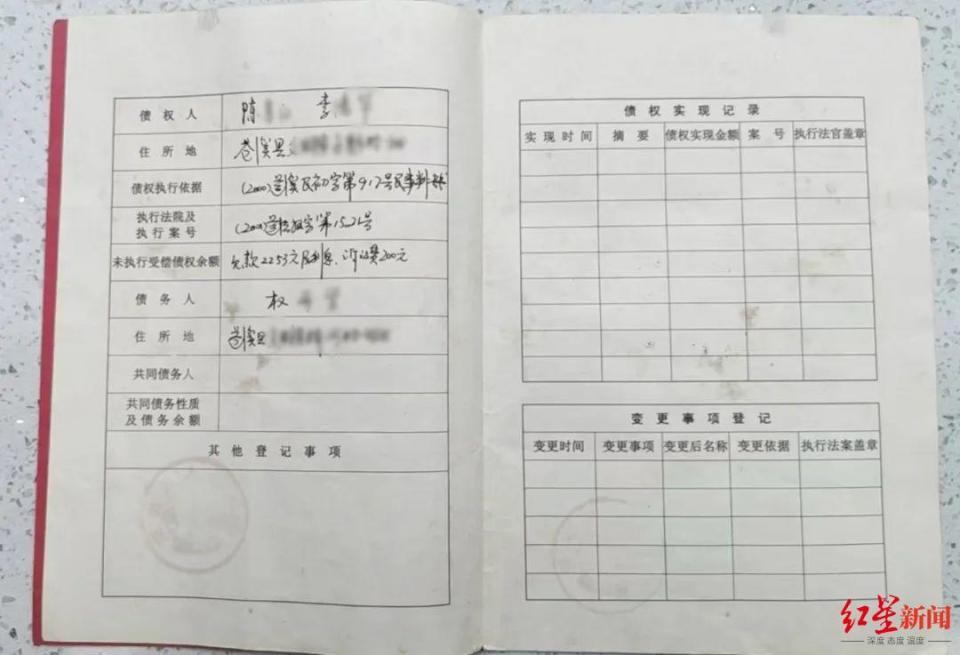 债权人
李
住所地
苍溪县
债权执行依据
(2000)苍溪民初字第917号民事判决
执行法院及
执行案号
(2000)苍溪执字第1521号
未执行受偿债权余额
欠款2253元及利息、诉讼费200元
债务人
权
住所地
苍溪县
共同债务人
共同债务性质
及债务余额
其他登记事项
债权实现记录
实现时间 摘要 债权实现金额 案号 执行法官盖章
变更事项登记
变更时间 变更事项 变更后名称 变更依据 执行法案盖章
红星新闻
深度 态度 温度